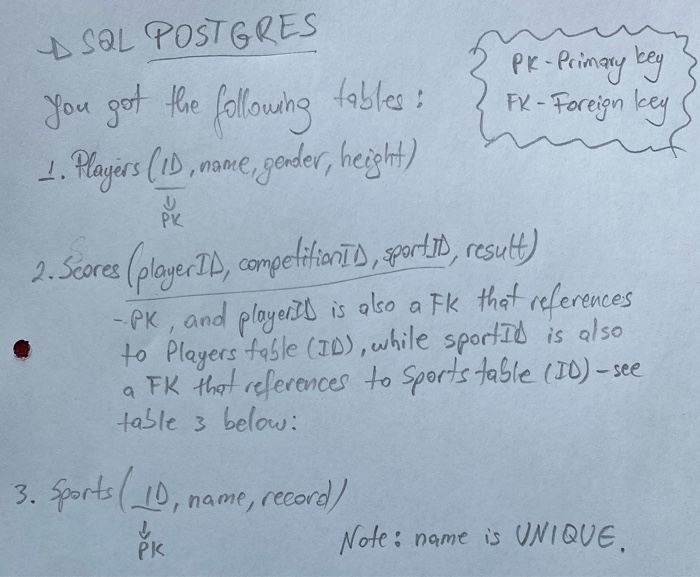 SQL POSTGRES
PK - Primary key
FK - Foreign key
You got the following tables:
1. Players (ID, name, gender, height)
PK
2. Scores (playerID, competitionID, sportID, result)
- PK, and playerID is also a FK that references
to Players table (ID), while sportID is also
a FK that references to Sports table (ID) - see
table 3 below:
3. Sports (ID, name, record)
PK
Note: name is UNIQUE.